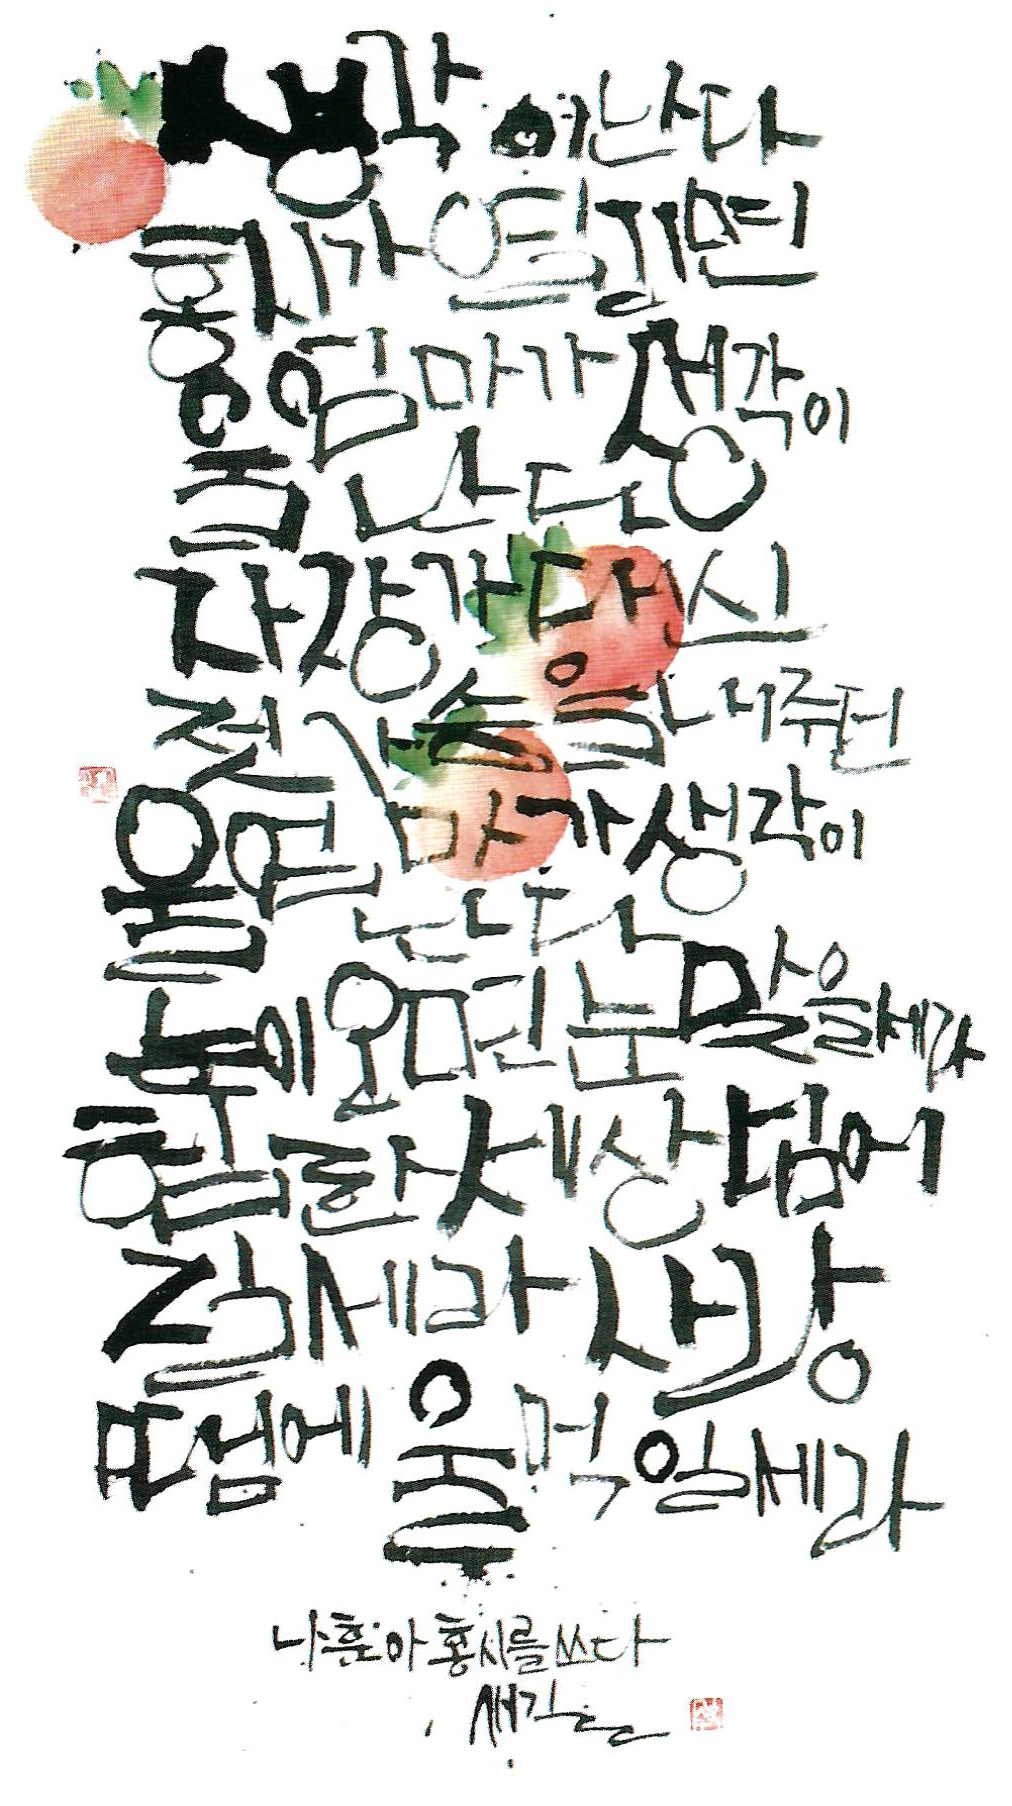 생각이 난다
홍시가 열리면
울 엄마가 생각이
난다
자장가 대신
젖가슴을 내주던
울 엄마가 생각이
난다
눈이 오면 눈 맞을세라
험한 세상 넘어
질세라 사랑
땜에 울먹일세라
나훈아 홍시를 쓰다